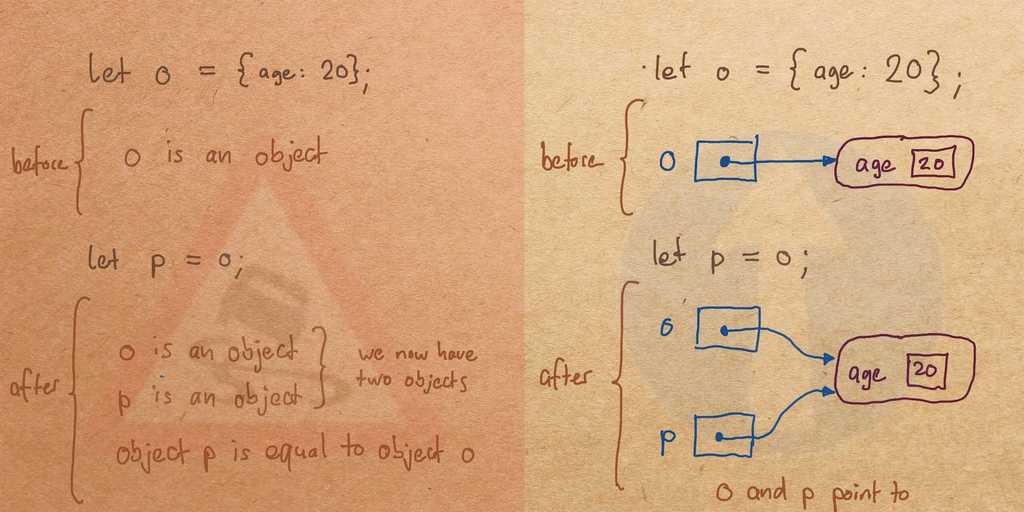 let o = {age: 20};
before
o is an object
let p = o;
after
o is an object
p is an object
we now have
two objects
object p is equal to object o
let o = {age: 20};
before
o
age 20
let p = o;
after
o
p
age 20
o and p point to